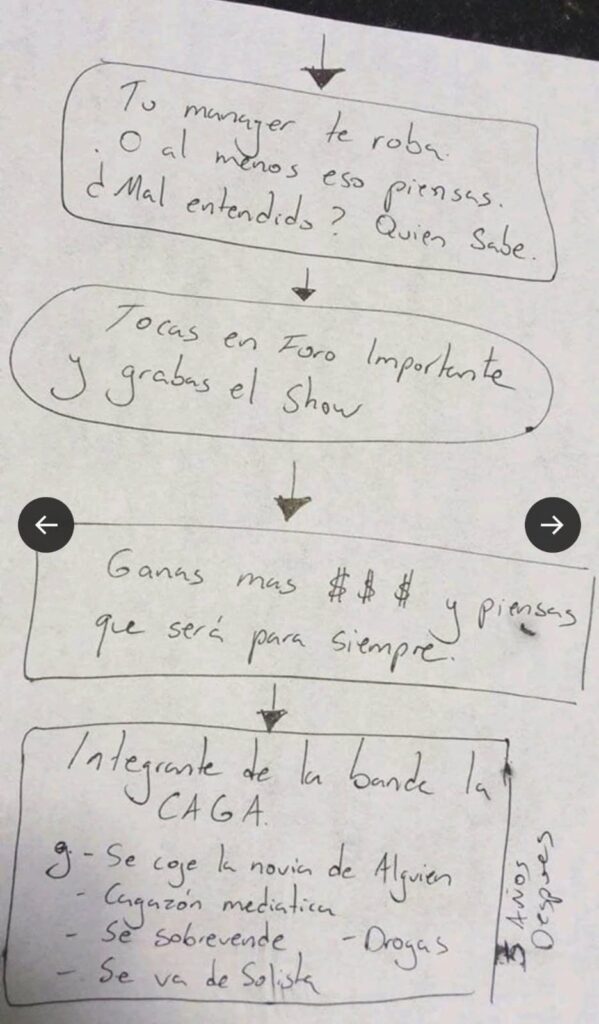 Tu manager te roba.
. O al menos eso piensas.
¿ Mal entendido? Quien Sabe.
Tocas en Foro Importante
y grabas el Show
Ganas mas $ $ $ y piensas
que será para siempre.
Integrante de la banda la
CAGA.
- Se coje la novia de Alguien
- Cagazón mediatica
- Se sobrevende - Drogas
- Se va de Solista
Años
Despues